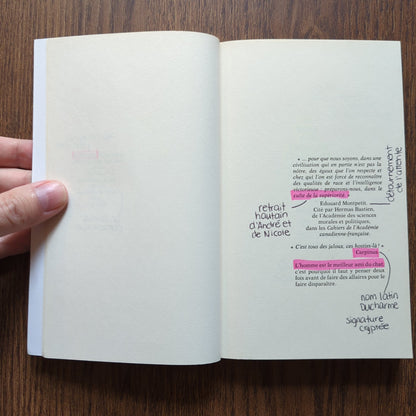 « ... pour que nous soyons, dans une
civilisation qui en partie n'est pas la
nôtre, des égaux que l'on respecte et
chez qui l'on est forcé de reconnaître
des qualités de race et l'intelligence
victorieuse, préparons-nous, dans le
culte de la supériorité. »
Édouard Montpetit.
Cité par Herman Bastien,
de l'Académie des sciences
morales et politiques,
dans les Cahiers de l'Académie
canadienne-française.
« C'est tous des jaloux, ces hosties-là ! »
Carpinus
L'homme est le meilleur ami du chat,
c'est pourquoi il faut y penser deux
fois avant de faire des affaires pour le
faire disparaître.
détournement
de l'attente
retrait
hautain
d'André et
de Nicole
nom latin
Ducharme
signature
cryptée